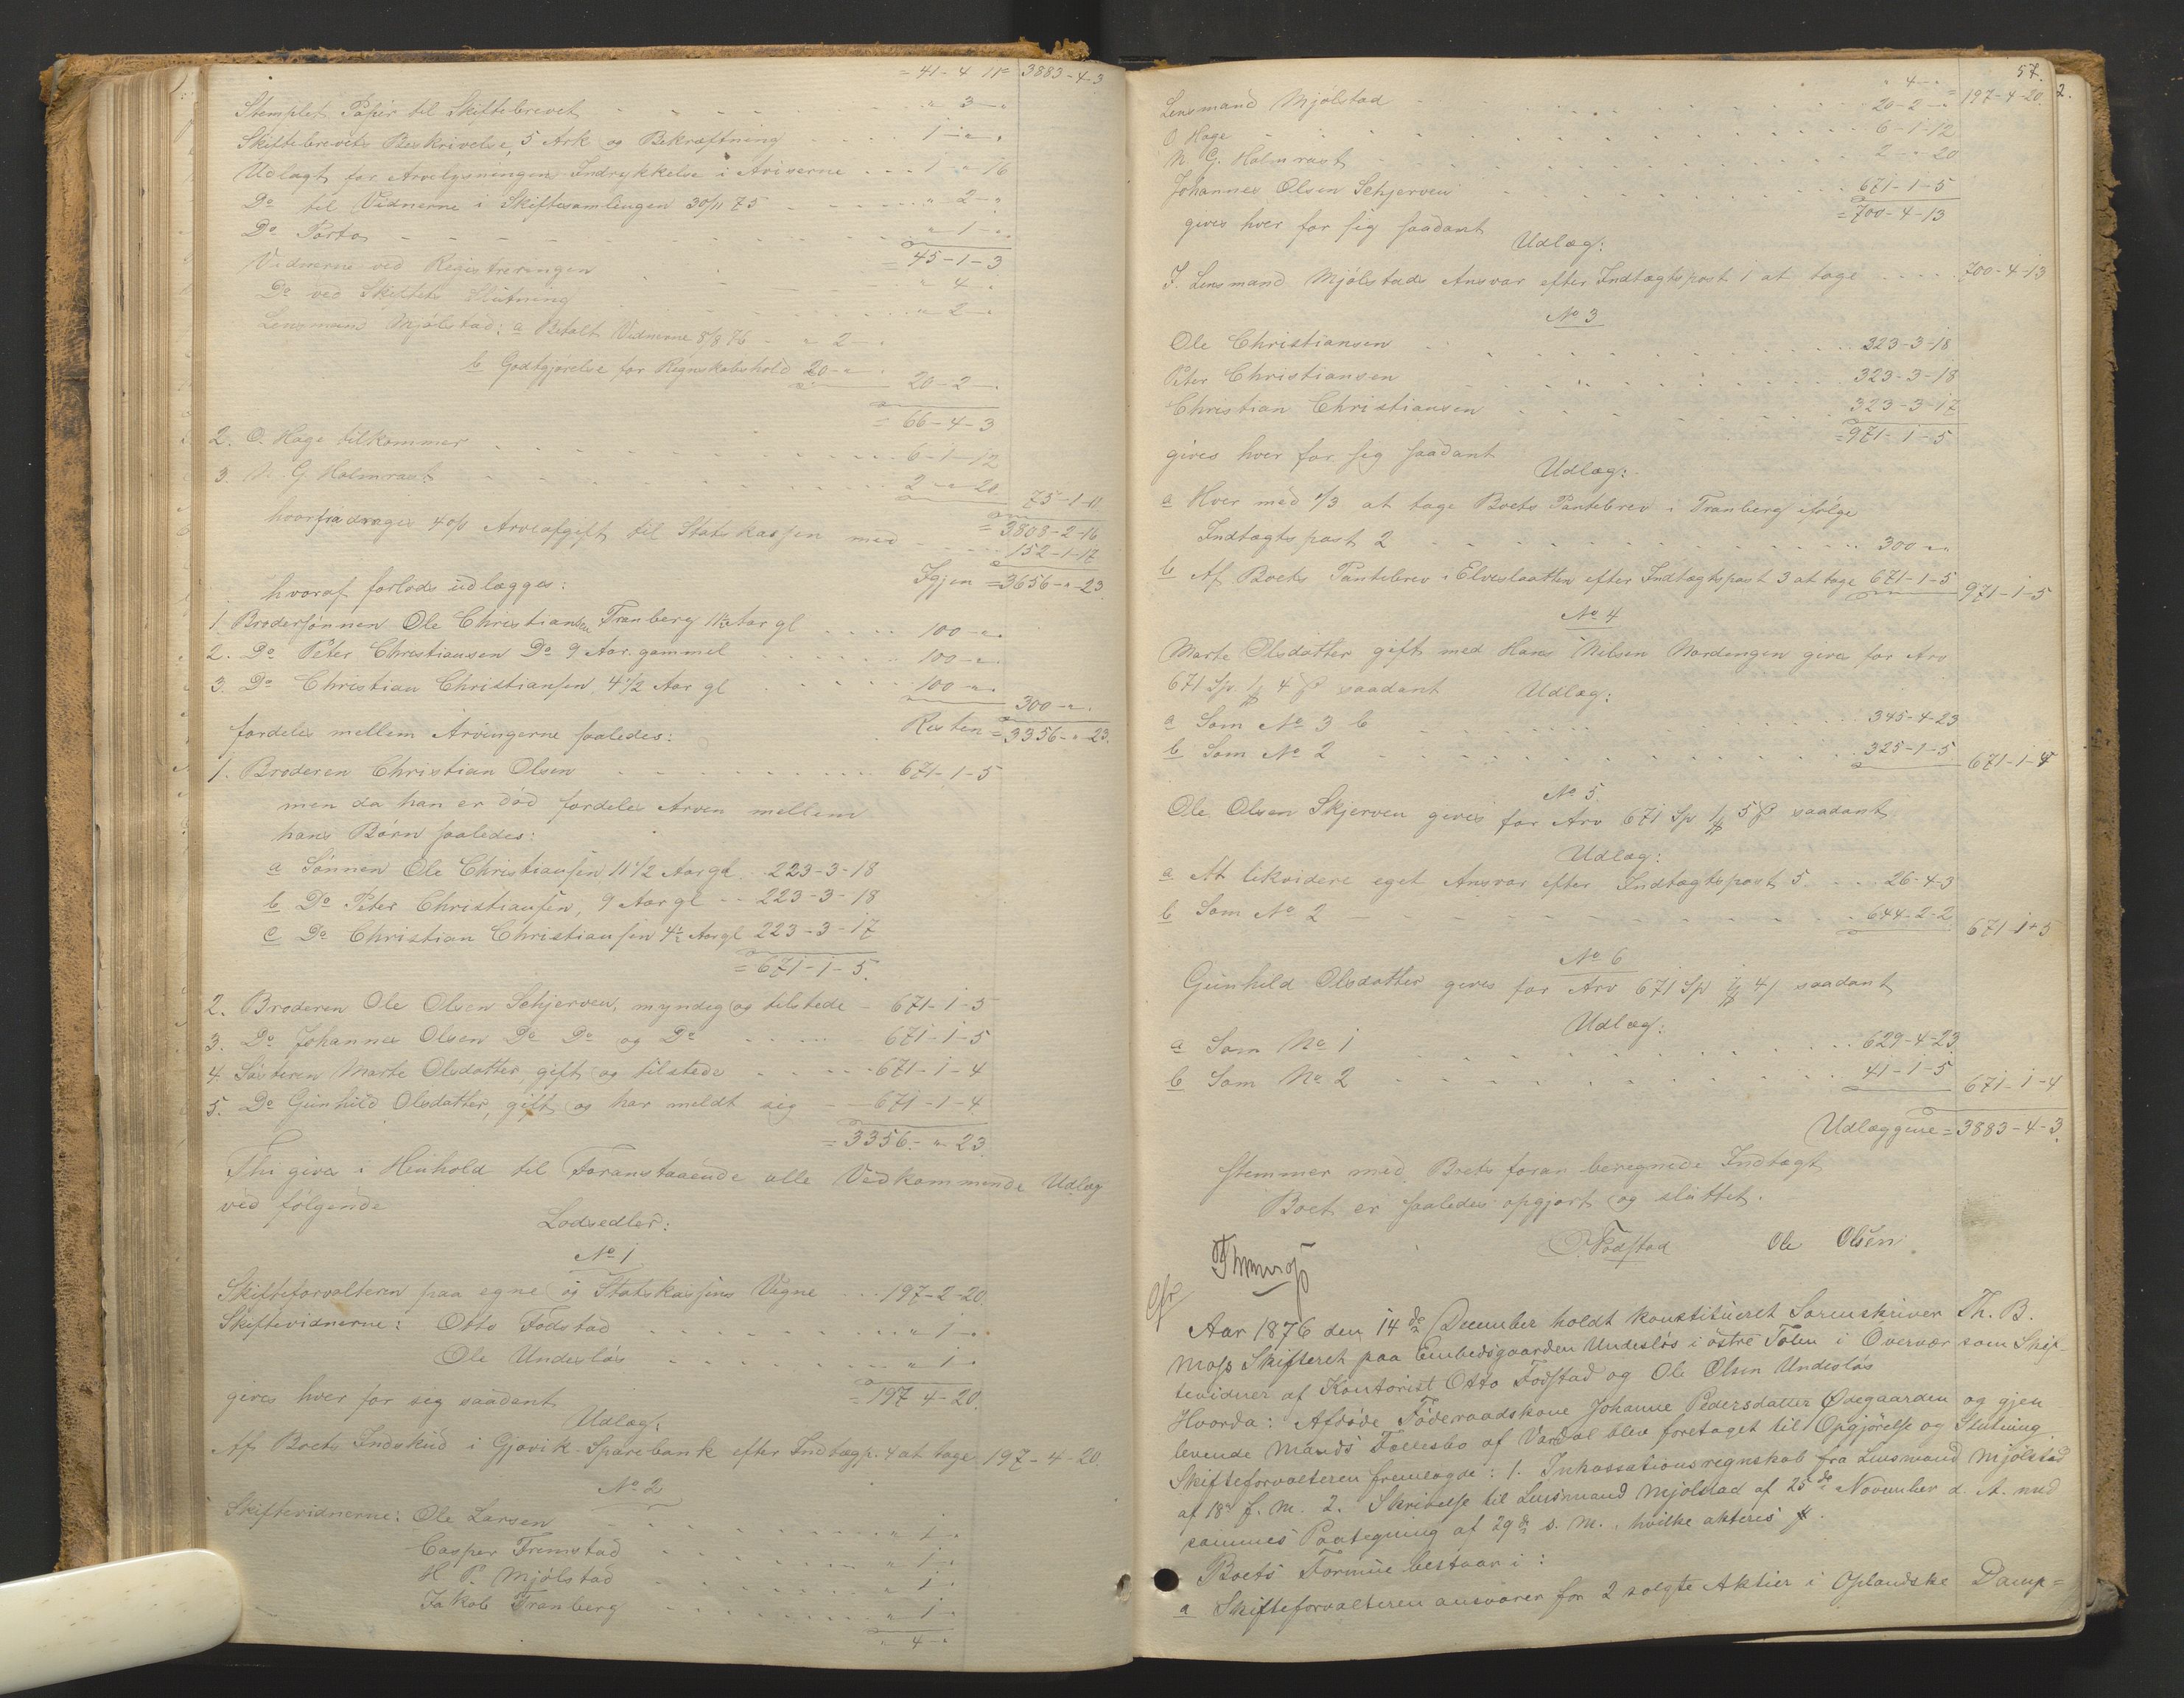 = 41 - 4 - 11 3883-4-3
Stemplet Papir til Skiftebrevet - - - - „ 3 - „
Skiftebrevets Beskrivelse, 5 Ark og Bekræftning - - 1 - „ - „
Udlagt for Arvelysningens Indrykkelse i Aviserne - - - 1 - „ 16
Do til Vidnerne i Skiftesamlingen 30/11 75 - - - - „ 2 - „
Do Porto - - - - - „ 1 - „
= 45-1-3
Vidnerne ved Registreringen - - - - „ 4 - „
Do ved Skiftets Slutning - - - - „ 2 - „
Lensmand Mjølstad: a Betalt Vidnerne 5/8 76 - „ 2 - „
b Godtgjørelse for Regnskabshold 20 - „ 20-2 - „
= 66-4-3
2. O. Hage tilkommer - - - - 6-1-12
3. N. G. Holmrast - - - - 2 - „ 20 75-1-11
= 3808-2-16
hvorfra drages 4 o/o Arveafgift til Statskassen med - - - 152-1-17
Igjen = 3656 - „ - 23.
hvoraf forlods udlægges:
1. Brodersønnen Ole Christiansen Tranberg 11 1/2 Aar gl - - - - 100 - „
2. Do Peter Christiansen Do 9 Aar gammel - - - - 100 - „
3. Do Christian Christiansen, 4 1/2 Aar gl - - - - 100 - „
300 - „
Resten = 3356 - „ - 23.
fordeles mellem Arvingerne saaledes:
1. Broderen Christian Olsen - - - - 671-1-5
men da han er død fordeles Arven mellem
hans Børn saaledes:
a Sønnen Ole Christiansen 11 1/2 Aar gl. 223-3-18
b Do Peter Christiansen, 9 Aar gl - - 223-3-18
c Do Christian Christiansen 4 1/2 Aar gl 223-3-17
= 671-1-5.
2. Broderen Ole Olsen Schjerven, myndig og tilstede - 671-1-5
3. Do Johannes Olsen Do Do og Do - - - - 671-1-5
4. Søsteren Marte Olsdatter, gift og tilstede - - - - 671-1-4
5. Do Gunhild Olsdatter, gift og har meldt sig - 671-1-4
= 3356 - „ - 23.
Thi gives i Henhold til Foranstaaende alle Vedkommende Udlæg
ved følgende
Lodsedler:
No 1
Skifteforvalteren paa egne og Statskassens Vegne - - - 197-2-20.
Skiftevidnerne: Otto Fodstad - - - - „ 1 - „
Ole Undesløs - - - - „ 1 - „
= 197-4-20.
gives hver for sig saadant
Udlæg:
Af Boets Indskud i Gjøvik Sparebank efter Indtægp. 4 at tage 197-4-20.
No 2
Skiftevidnerne: Ole Larsen - - - - „ 1 - „
Casper Fremstad - - - - „ 1 - „
H. P. Mjølstad - - - - „ 1 - „
Jakob Tranberg - - - - „ 1 - „
„ 4 - „
57.
„ 4 - „ 197-4-20. 2.
Lensmand Mjølstad - - - - 20-2 - „
O. Hage - - - - 6-1-12
N. G. Holmrast - - - - 2 - „ 20
Johannes Olsen Schjerven - - - - 671-1-5
= 700-4-13
gives hver for sig saadant
Udlæg:
I Lensmand Mjølstads Ansvar efter Indtægtspost 1 at tage - - - - 700-4-13
No 3
Ole Christiansen - - - - 323-3-18
Peter Christiansen - - - - 323-3-18
Christian Christiansen - - - - 323-3-17
= 971-1-5
gives hver for sig saadant
Udlæg:
a Hver med 1/3 at tage Boets Pantebrev i Tranberg ifølge
Indtægtspost 2 - - - - 300 - „
b Af Boets Pantebrev i Elveslaatten efter Indtægtspost 3 at tage 671-1-5 971-1-5
No 4
Marte Olsdatter gift med Hans Nilsen Nordengen gives for Arv
671 Sp 1 4 ß saadant Udlæg:
a Som No 3 b - - - - 345-4-23
b Som No 2 - - - - 325-1-5 671-1-4
No 5.
Ole Olsen Skjerven gives for Arv 671 Sp 1 5 ß saadant
Udlæg:
a At likvidere eget Ansvar efter Indtægtspost 5. - - 26-4-3
b Som No 2 - - - - 644-2-2 671-1-5
No 6
Gunhild Olsdatter gives for Arv 671 Sp 1 4 ß saadant
Udlæg:
a Som No 1 - - - - 629-4-23.
b Som No 2 - - - - 41-1-5 671-1-4
Udlæggene = 3883-4-3.
stemmer med Boets foran beregnede Indtægt
Boet er saaledes opgjort og sluttet.
O. Fodstad Ole Olsen
Th Moss
Aar 1876 den 14de December holdt konstitueret Sorenskriver Th. B.
Moss Skifteret paa Embedsgaarden Undesløs i østre Toten i Overvær som Skif-
tevidner af Kontorist Otto Fodstad og Ole Olsen Undesløs
Hvorda: Afdøde Føderaadskone Johanne Pedersdatter Ødegaarden og gjen
levende Mands Fællesbo af Vardal blev foretaget til Opgjørelse og Slutning.
Skifteforvalteren fremlagde: 1. Inkassationsregnskab fra Lensmand Mjølstad
af 18de f. M. 2. Skrivelse til Lensmand Mjølstad af 25de November d. A. med
sammes Paategning af 29de s. M., hvilke akteres
Boets Formue bestaar i:
a Skifteforvalteren ansvarer for 2 solgte Aktier i Oplandske Damp=